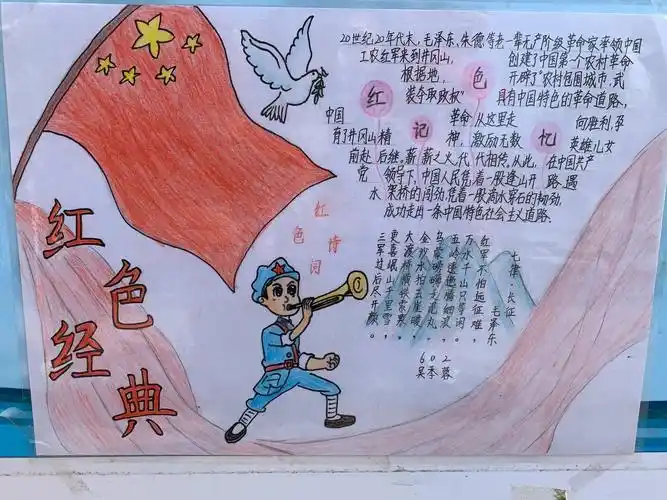 红色经典
红色记忆
20世纪20年代末,毛泽东、朱德等老一辈无产阶级革命家率领中国
工农红军来到井冈山, 创建了中国第一个农村革命
根据地, 开辟了"农村包围城市、武
装夺取政权" 具有中国特色的革命道路,
中国 革命从这里走 向胜利,孕
育了井冈山精 神,激励无数 英雄儿女
前赴后继。薪薪之火,代代相传。从此,在中国共产
党 领导下,中国人民凭着一股逢山开路、遇
水架桥的闯劲,凭着一股滴水穿石的韧劲,
成功走出一条中国特色社会主义道路。
红色诗词
七律·长征
毛泽东
红军不怕远征难,
万水千山只等闲。
五岭逶迤腾细浪,
乌蒙磅礴走泥丸。
金沙水拍云崖暖,
大渡桥横铁索寒。
更喜岷山千里雪,
三军过后尽开颜。
602